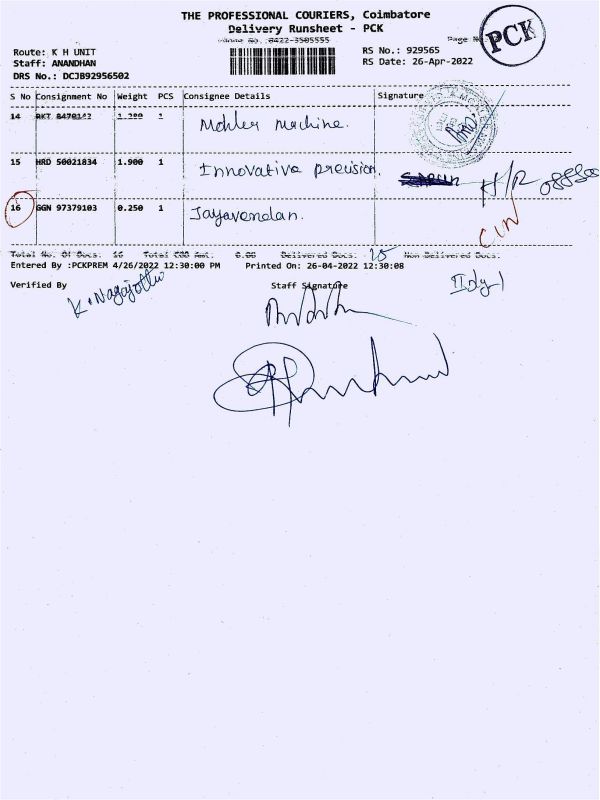 THE PROFESSIONAL COURIERS, Coimbatore
Delivery Runsheet - PCK
Phone No. 0422-3505555
Page No
PCK
Route: K H UNIT
RS No.: 929565
Staff: ANANDHAN
RS Date: 26-Apr-2022
DRS No.: DCJB92956502
S No Consignment No Weight PCS Consignee Details Signature
14 1.200 1 Mahler Machine.
15 HRD 50021834 1.900 1 Innovative precision. H/R
16 GGN 97379103 0.250 1 Jayavendan.
Total No. Of Docs. 16 Total COD Amt. 0.00 Delivered Docs. 15 Non Delivered Docs.
Entered By :PCKPREM 4/26/2022 12:30:00 PM Printed On: 26-04-2022 12:30:08
Verified By Staff Signature